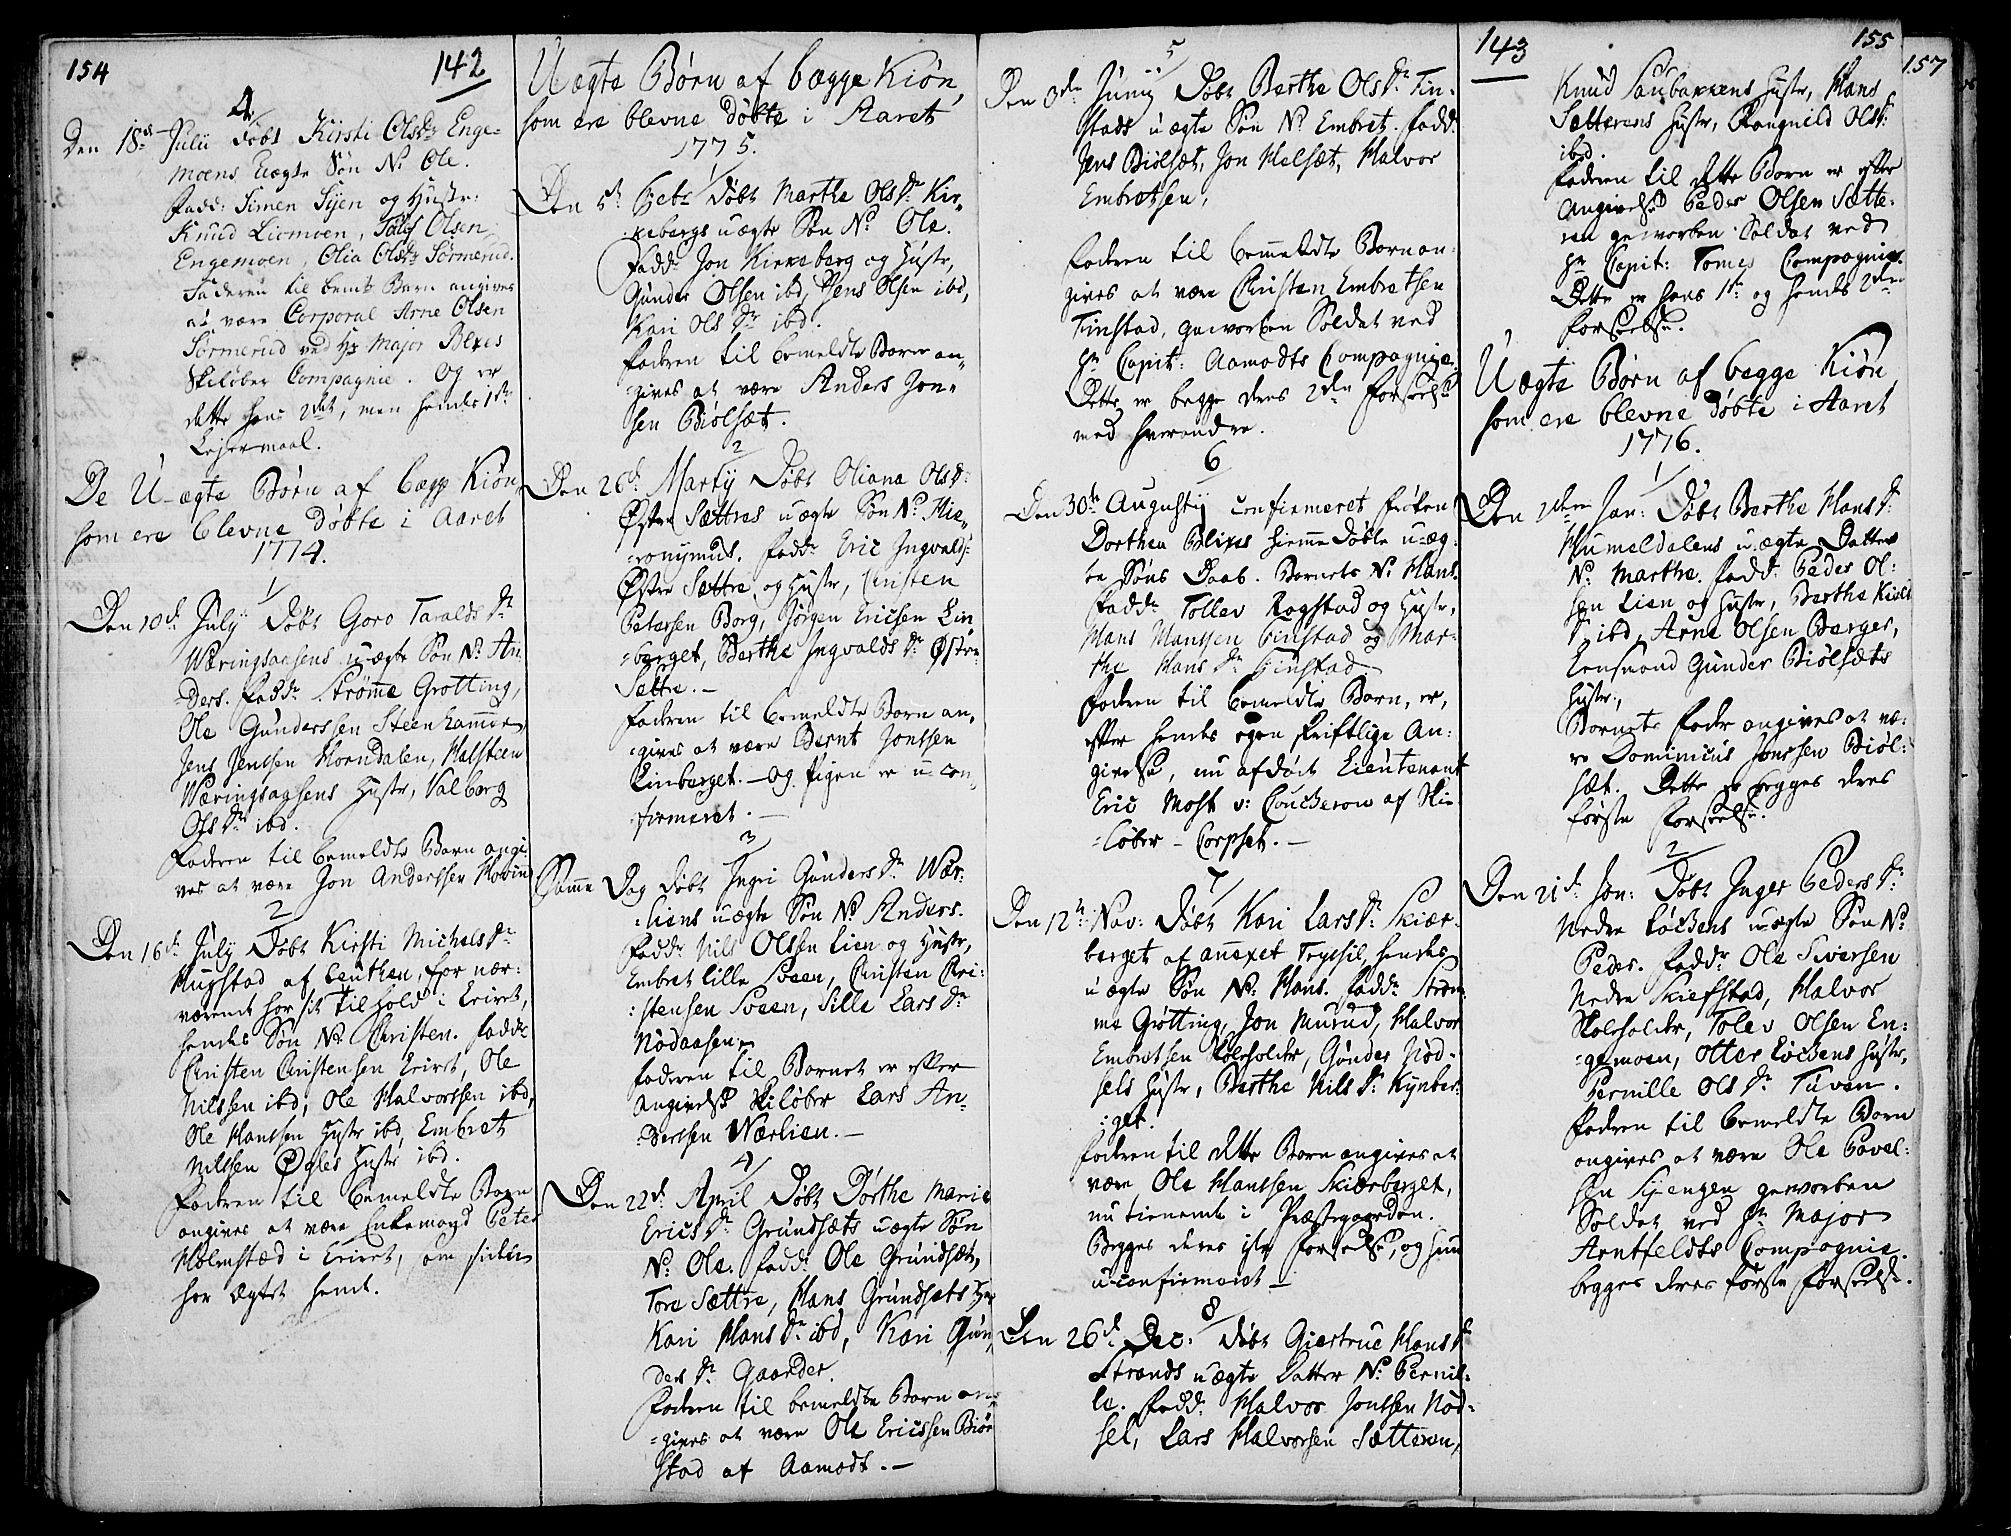 154
142
4
Den 18de Julii døbt Kirsti Olsdr Enge-
moens Uægte Søn No Ole.
Fadd: Simen Sijen og Hustr:
Knud Liomoen, Tolef Olsen
Engemoen, Olia Olsdr Sörmerud.
Faderen til bemte Barn angives
at være Corporal Arne Olsen
Sörmerud ved Hr Major Blexes
Skiløber Compagnie. Og er
dette hans 2det, men hendes 1ste
Lejermaal.
De U-ægte Børn af begge Kiön,
som ere blevne døbte i Aaret
1774.
1
Den 10de July Døbt Goro Taralds Dr
Wæringsaasens uægte Søn No An-
ders. Fadd: Strømme Grøtting,
Ole Gunderssen Steenhammer
Jens Jenssen Horndalen, Halsteen
Wæringsaasens Hustr, Valborg
Ols Dr ibd.
Faderen til bemeldte Barn angi-
ves at være Jon Anderssen Moein
2
Den 16de July Døbt Kirsti Michels Dr
Mugstad af Leuthen, for nær-
værende har sit tilhold i Eivret,
hendes Søn No Christen. Fadd:
Christen Christensen Eivret, Ole
Nilssen ibd, Ole Halvorssen ibd,
Ole Hanssen Hustr ibd, Embret
Nilssen Øgles Hustr ibd.
Faderen til bemeldte Barn
angives at være Enkemand Peter
Holmstæd i Eivret, som siden
har ægtet hende.
Uægte Børn af begge Kiön,
som ere blevne døbte i Aaret
1775.
1
Den 5te Febr Døbt Marthe Ols Dr Kir-
kebergs uægte Søn No Ole.
Fadd: Jon Kirkeberg og Hustr,
Gunder Olsen ibd, Jens Olsen ibd,
Kari Ols Dr ibd.
Faderen til bemeldte Barn an-
gives at være Anders Jon-
sen Biølsæt.
2
Den 26de Martij Døbt Oliana Ols Dr
Østre Sættres uægte Søn No Hie-
ronymus. Fadd: Eric Ingvalds:
Østre Sættre og Hustr, Christen
Petersen Borg, Jørgen Ericsen Lin
berget, Berthe Ingvalds Dr Østre
Sættre.-
Faderen til bemeldte Barn an-
gives at være Bernt Jonssen
Linberget.- Og Pigen er u-con-
firmeret.-
3
Samme Dag døbt Ingri Gunders Dr Wær-
liens uægte Søn No Anders.
Fadd: Nils Olssen Lien og Hustr,
Embret lille Sveen, Christen Chri-
stensen Sveen, Sille Lars Dr
Nödaasen.
Faderen til Barnet er efter
angivelse Skiløber Lars An-
derssen Wærlien.-
4
Den 22de April Døbt Dorthe Marie
Erics Dr Grundsæts uægte Søn
No Ole. Fadd: Ole Grundsæt,
Tore Sættre, Hans Grundsæts Hustr
Kari Hans Dr ibd, Kari Gun-
ders Dr Gaarder.
Faderen til bemeldte Barn an-
gives at være Ole Ericssen Biør
stad af Aamodt.-
5
Den 3die Junij Døbt Berthe Ols Dr Fin-
stads uægte Søn No Embret. Fadd:
Jens Biölsæt, Jon Melsæt, Halvor
Embretsen,
Faderen til bemeldte Barn an-
gives at være Christen Embretsen
Finstad, geworben Soldat ved
Hr Capit: Aamodts Compagnie.
Dette er begge deres 2den forseelse
med hverandre.
6
Den 30te Augustij confirmeret Frøken
Dorthea Blixes hiemmedøbte u-æg-
te Søns Daab. Barnets No Hans.
Fadd: Tollev Rogstad og Hustr,
Hans Hanssen Finstad og Mar-
the Hans Dr Finstad
Faderen til bemeldte Barn, er,
efter hendes egen skriftlige An-
givelse, nu afdöde Lieutenant
Eric Most v: Coucheron af Ski-
løber - Corpset.-
7
Den 12te Nov: Døbt Kari Lars Dr Skiær-
berget af annexet Tryssil, hendes
uægte Søn No: Hans. Fadd: Strøm-
me Grötting, Jon Murud, Halvor
Embretsen Skoleholder, Gunder Nöd-
sels Hustr, Berthe Nils Dr Kynber-
get.
Faderen til dette Barn angives at
være, Ole Hanssen Skiærberget,
nu tienende i Præstegaarden.
Begges deres 1ste forseelse, og hun
u-confirmeret -
8
Den 26de Dec: Døbt Giertrue Hans Dr
Strands uægte Datter No Pernil-
le. Fadd: Halvor Jonssen Nöd-
sel, Lars Halvorsen Sætteren,
143
155
157
Knud Saubakkens Hustr, Hans
Sætterens Hustr, Rangnild Ols Dr
ibd.
Faderen til dette Barn er efter
Angivelse Peder Olsen Sætte-
ren geworben Soldat ved
Hr Capit: Tomes Compagnie.
Dette er hans 1ste og hendes 2den
forseelse.
Uægte Børn af begge Kiön
som ere blevne døbte i Aaret
1776.
1
Den 2den Jan: Døbt Berthe Hans Dr
Humeldalens u-ægte Datter
No: Marthe. Fadd: Peder Ol-
sen Lien og Hustr, Berthe Kield
Dr ibd, Arne Olsen Berger,
Eensaand Gunder Biölsæts
Hustr,
Barnets Fader angives at væ-
re Dominicus Jonssen Biöl-
sæt. Dette er begges deres
første Forseelse.
2
Den 21de Jan: Døbt Inger Peders Dr
Nedre Löckens uægte Søn No
Peder. Fadd: Ole Siversen
Nedre Skiefstad, Halvor
Skoleholder, Tolev Olsen En-
gemoen, Otter Löckens Hustr,
Pernille Ols Dr Tuven.
Faderen til bemeldte Barn
angives at være Ole Povel-
sen Sjengen geworben
Soldat ved Hr Major
Arntfeldts Compagnie.
begges deres første forseelse.